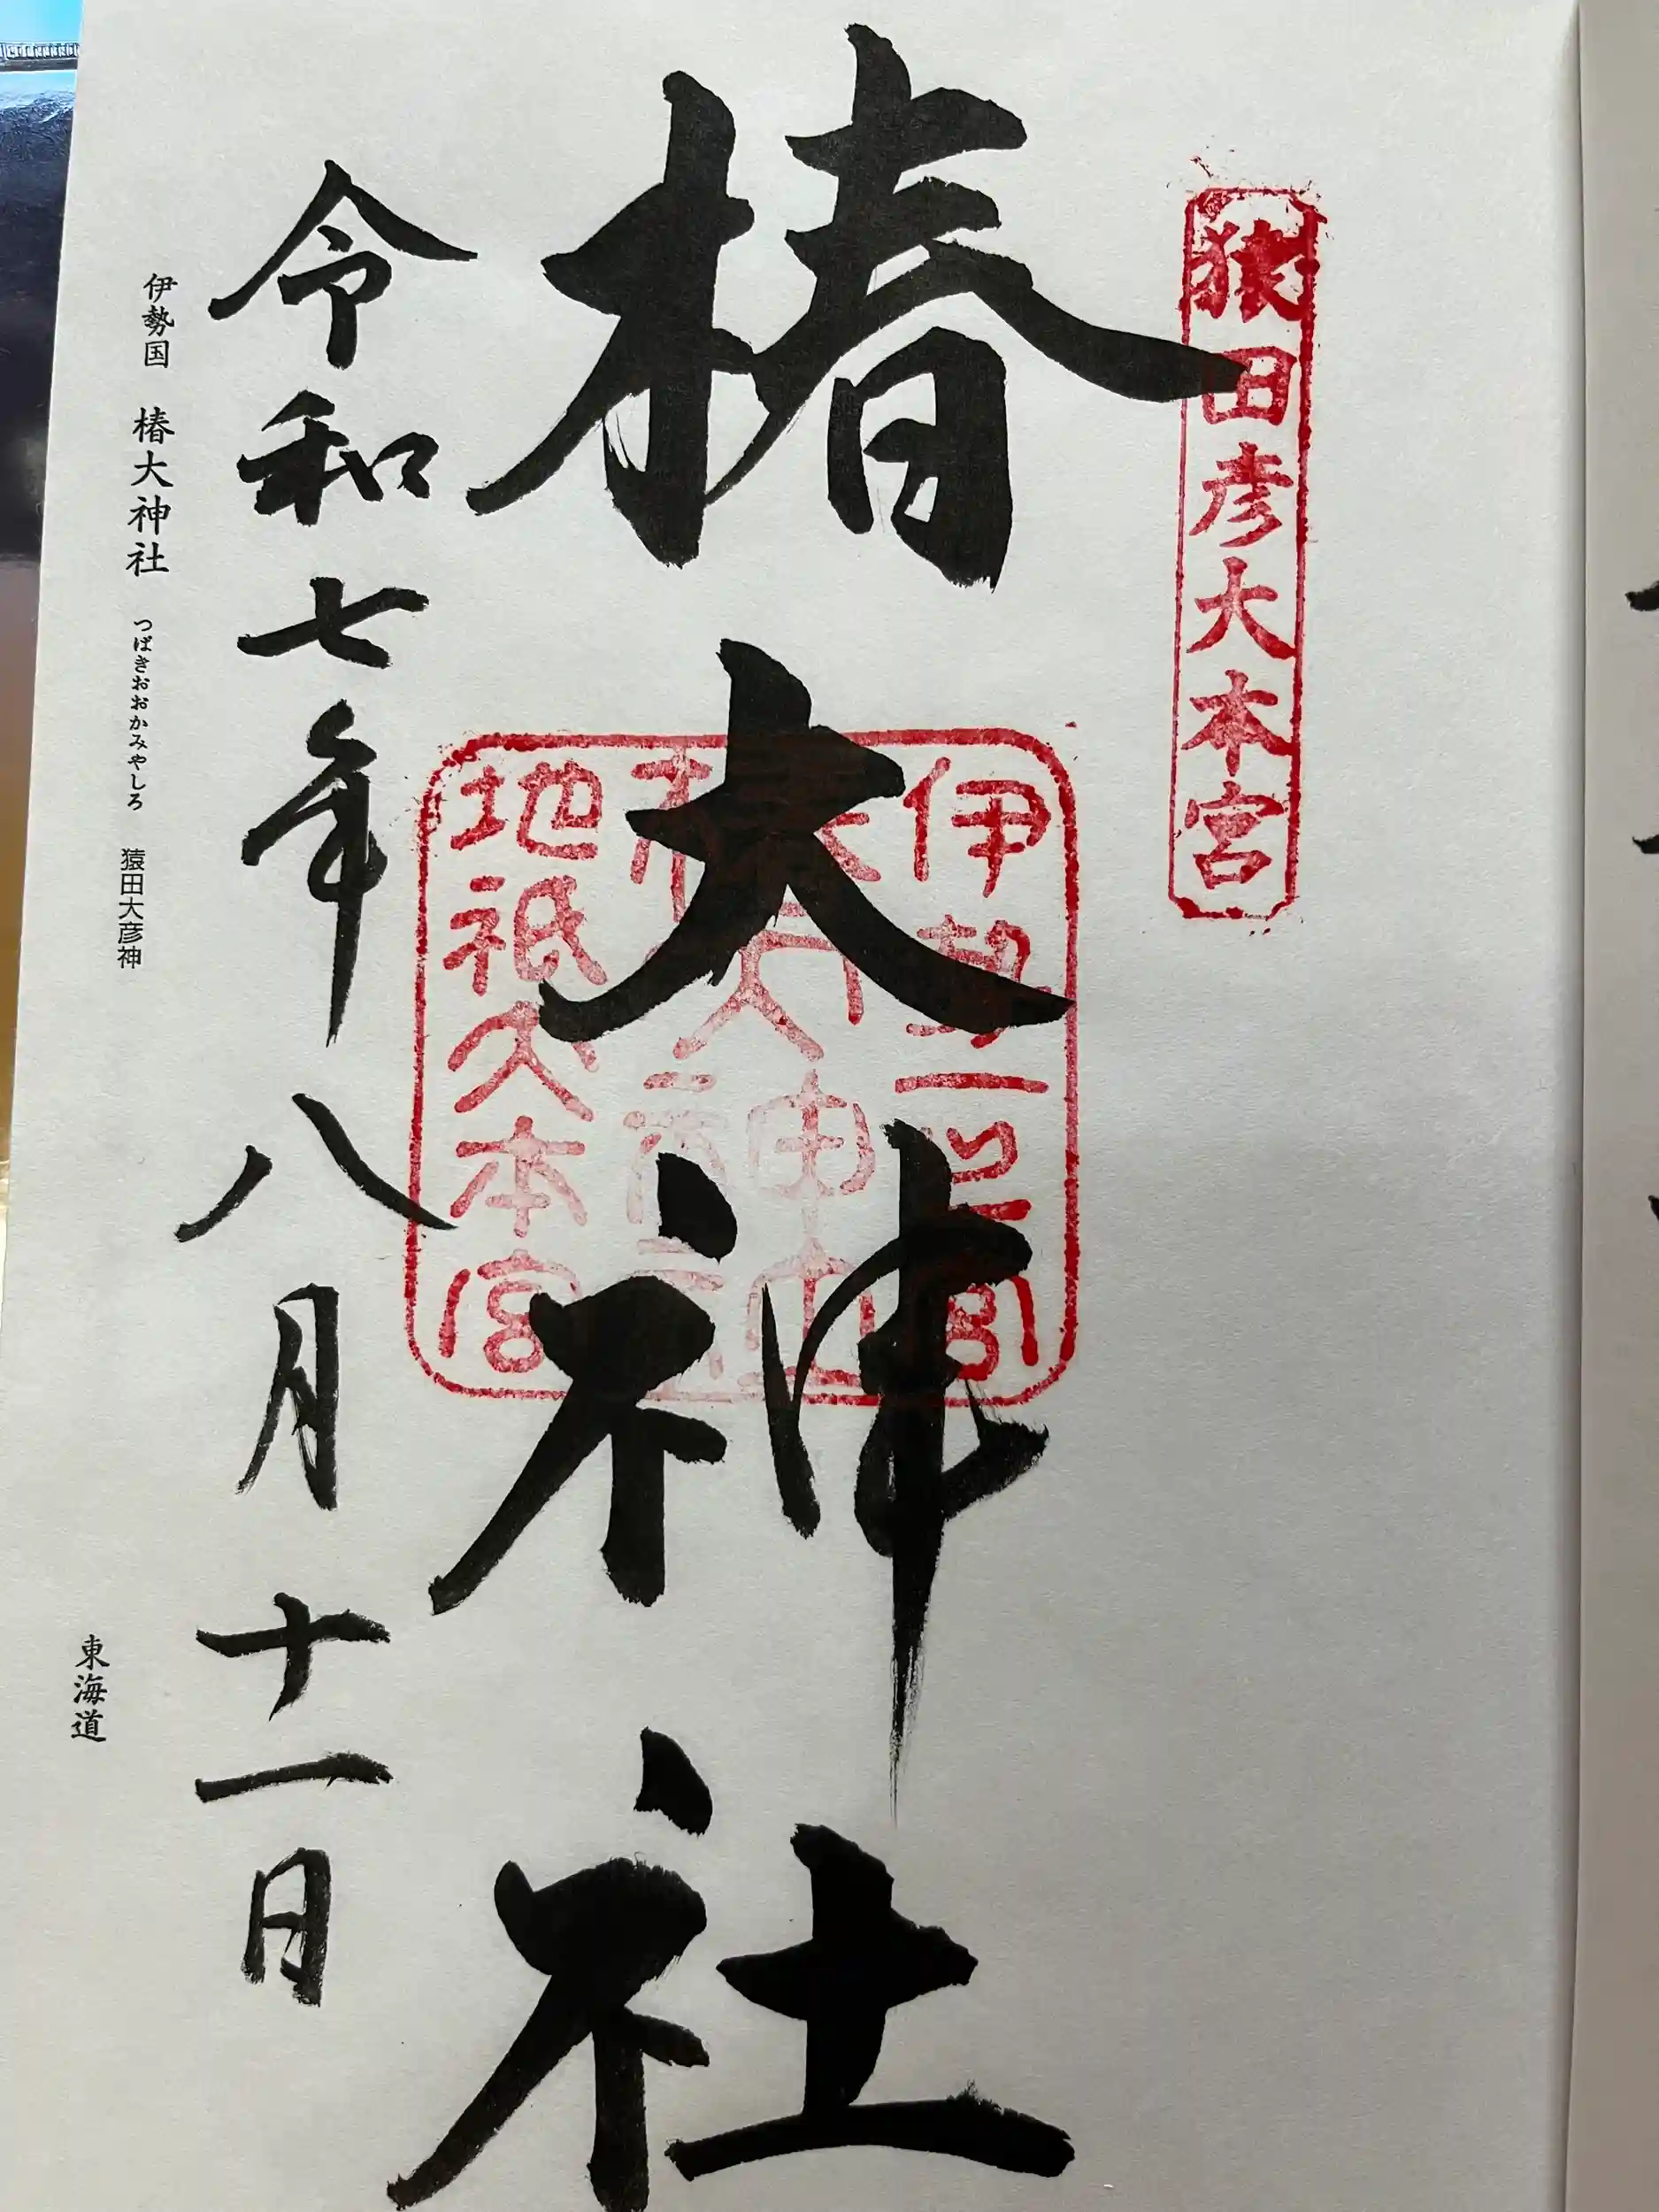 猿田彦大本宮
椿大神社
伊勢一之宮
椿大神社
地祇大本宮
令和七年八月十一日
伊勢国 椿大神社 つばきおおかみやしろ 猿田大彦神
東海道